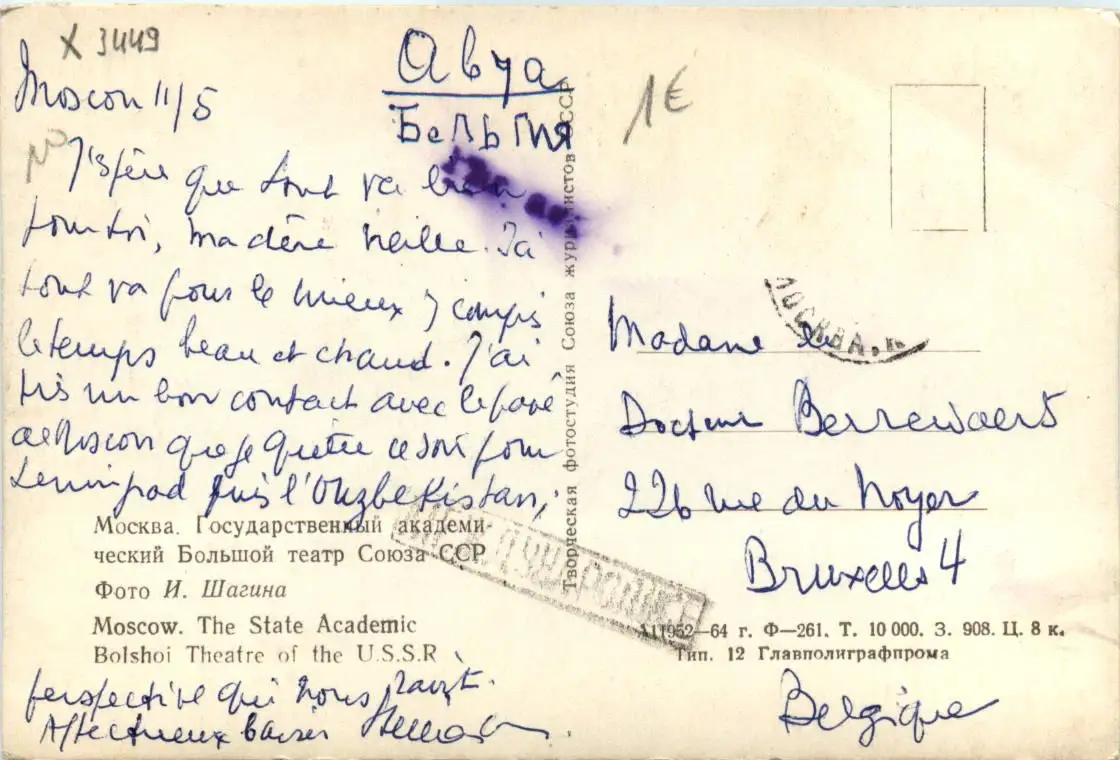 X 3449
Moscou 11/5
Авуа
Бельгия
1€
J'espère que tout va bien
pour toi, ma chère vieille. Ici
tout va pour le mieux y compris
le temps beau et chaud. J'ai
pris un bon contact avec le pavé
de Moscou que je quitte ce soir pour
Leningrad puis l'Ouzbekistan,
Москва. Государственный академи-
ческий Большой театр Союза ССР
Фото И. Шагина
Moscow. The State Academic
Bolshoi Theatre of the U.S.S.R
perspective qui nous ravit.
Affectueux baiser
Творческая фотостудия Союза журналистов СССР
МОСКВА
МЕЖДУНАРОДНОЕ
Madame le
Docteur Berrewaerts
226 rue du Noyer
Bruxelles 4
А11952—64 г. Ф—261. Т. 10 000. З. 908. Ц. 8 к.
Тип. 12 Главполиграфпрома
Belgique